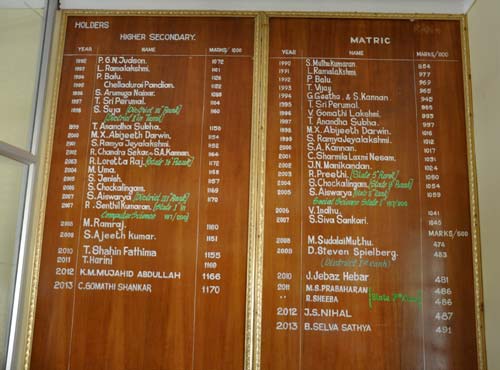 HOLDERS
HIGHER SECONDARY.
YEAR NAME MARKS/ 1200
P.G.N. Judson. 1072
1997 L. Ramalakshmi.
1997 P. Balu.
Chelladurai Pandian.
S. Arumuga Nainar.
1997 T. Sri Perumal.
1998 S. Suja (District III Rank)
(District I in Tamil)
1999 T. Anandha Subha. 1150
2000 M.X. Abijeeth Darwin.
2001 S. Ramya Jeyalakshmi.
2002 R. Chandra Sekar & S.A. Kannan.
2003 R. Loretta Raj
2004 M. Uma.
2005 S. Jenish.
2006 S. Chockalingam.
2007 S. Aiswarya (District III Rank) 1170
2007 R. Senthil Kumaran. (State I in
Computer Science 200/200)
2008 M. Ramraj. 1160
2009 S. Ajeeth Kumar. 1151
2010 T. Shahin Fathima 1155
2011 T. Harini 1169
2012 K.M. MUJAHID ABDULLAH 1166
2013 C. GOMATHI SHANKAR 1170
MATRIC
YEAR NAME MARKS/1100
1990 S. Muthukumaran.
1991 L. Ramalakshmi. 977
1992 P. Balu
1993 T. Vijay
1994 G. Geetha. & S. Kannan.
1995 T. Sri Perumal.
1996 V. Gomathi Lakshmi.
1997 T. Anandha Subha. 997
1998 M.X. Abijeeth Darwin.
1999 S. Ramya Jeyalakshmi.
2000 S.A. Kannan.
2001 C. Sharmila Laxmi Nesam.
2002 J.N. Manikandan.
2003 R. Preethi. (State 5th Rank)
2004 S. Chockalingam. (State 9th Rank)
2005 S. Aiswarya (State 5th Rank) 1059
Social Science State I
2006 V. Indhu. 1041
2007 S. Siva Sankari.
MARKS/500
2008 M. Sudalai Muthu. 474
2009 D. Steven Spielberg. 483
(District 1st Rank)
2010 J. Jebaz Hebar 481
2011 M.S. PRABAHARAN 486
" R. SHEEBA [State 7th Rank] 486
2012 J.S. NIHAL 487
2013 B. SELVA SATHYA 491